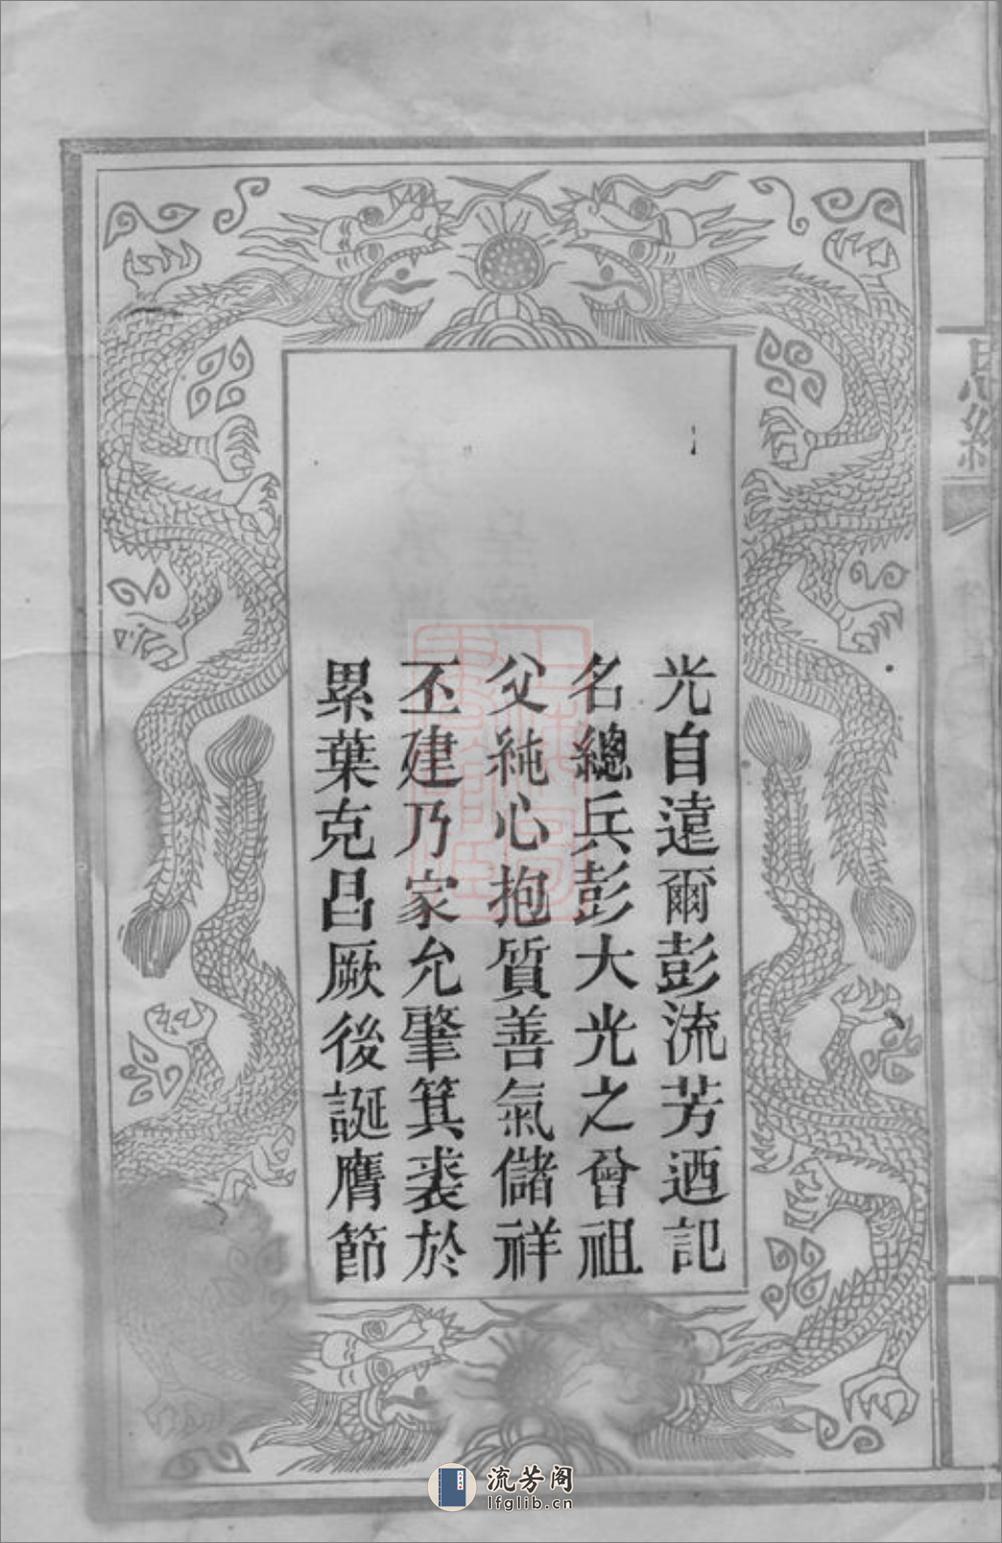 光自遠爾彭流芳迺記
名總兵彭大光之曾祖
父純心抱質善氣儲祥
丕建乃家允肇箕裘於
累葉克昌厥後誕膺節
流芳阁
lfglib.cn